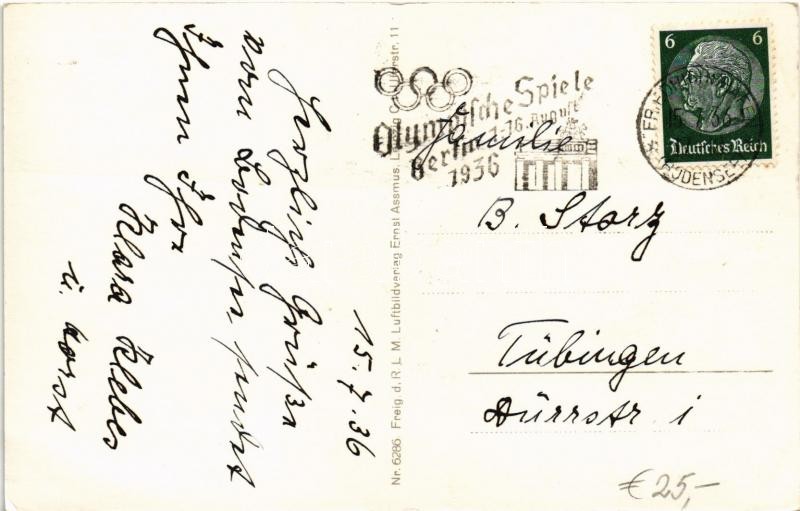 15.7.36
Herzliche Grüße
vom Bodensee sendet
Ihnen Ihre
Klara Kleber
u. Horst
Nr. 6286 Freig. d. R. L. M. Luftbildverlag Ernst Assmus, 11
Olympische Spiele
Berlin 1.-16. August
1936
6 6
Deutsches Reich
FRIEDRICHSHAFEN
15.7.36
BODENSEE
Familie
B. Storz
Tübingen
Dürrstr. 1
€ 25,-